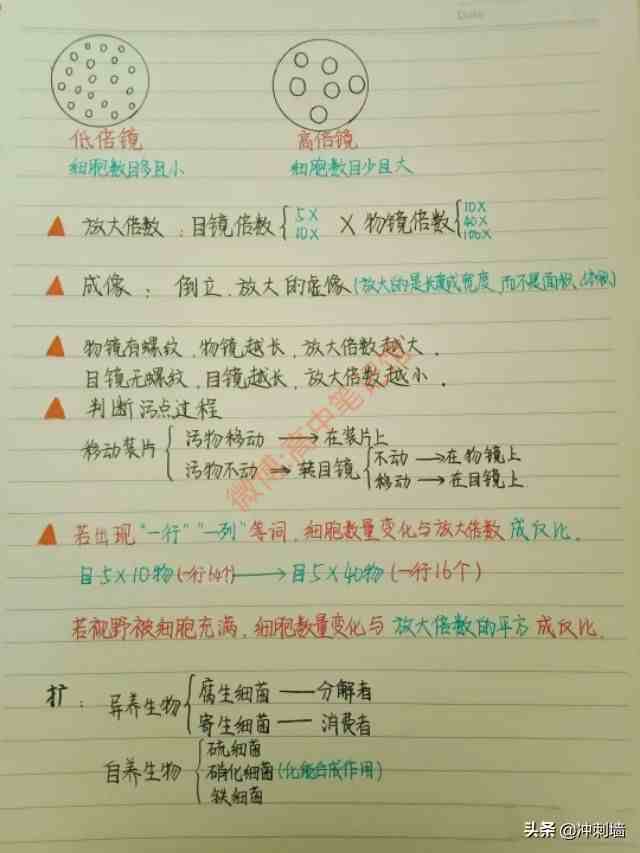 Date
低倍镜 高倍镜
细胞数目多且小 细胞数目少且大
放大倍数：目镜倍数{5X 10X X 物镜倍数{10X 40X 100X
成像：倒立、放大的虚像(放大的是长度或宽度,而不是面积、体积)
物镜有螺纹,物镜越长,放大倍数越大.
目镜无螺纹,目镜越长,放大倍数越小.
判断污点过程
移动装片{污物移动→在装片上
污物不动→转目镜{不动→在物镜上
移动→在目镜上
若出现"一行""一列"等词,细胞数量变化与放大倍数成反比.
目5X10物(一行64个)→目5X40物(一行16个)
若视野被细胞充满,细胞数量变化与放大倍数的平方成反比.
扩：异养生物{腐生细菌——分解者
寄生细菌——消费者
自养生物{硫细菌
硝化细菌(化能合成作用)
铁细菌
微博:高中笔记
头条@冲刺墙